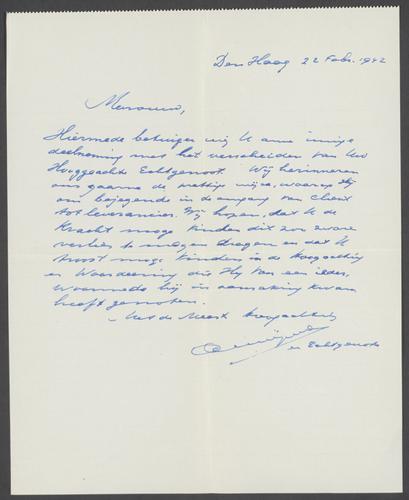 Den Haag 22 Febr. 1942
Mevrouw,
Hiermede betuigen wij U onze innige
deelneming met het verscheiden van Uw
Hooggeachte Echtgenoot. Wij herinneren
ons gaarne de prettige wijze, waarop Hij
ons bejegende in de omgang van Cliënt
tot leverancier. Wij hopen, dat U de
Kracht moge vinden dit zoo zware
verlies te mogen dragen en dat U
troost moge vinden in de hoogachting
en Waardeering die Hij van een ieder,
Waarmede hij in aanraking kwam
heeft genoten.
Met de Meeste Hoogachting
en Echtgenoote